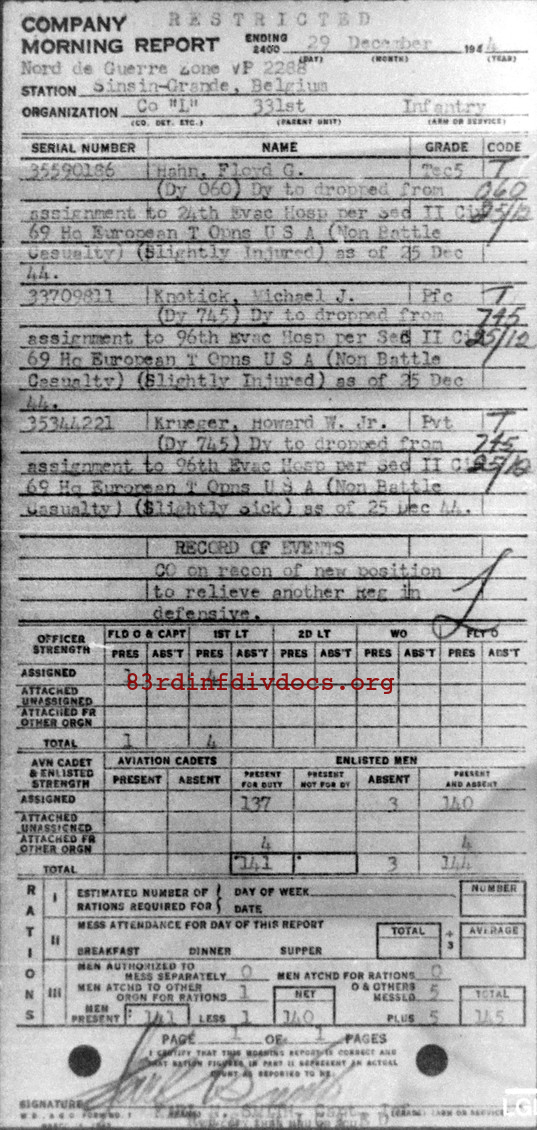 RESTRICTED
COMPANY
MORNING REPORT ENDING 2400 29 December 1944
(DAY) (MONTH) (YEAR)
Nord de Guerre Zone VP 2288
STATION Sinsin-Grande, Belgium
ORGANIZATION Co "L" 331st Infantry
(CO. DET. ETC.) (PARENT UNIT) (ARM OR SERVICE)
SERIAL NUMBER NAME GRADE CODE
35590186 Hahn, Floyd G. Tec5 T
(Dy 060) Dy to dropped from 060
assignment to 24th Evac Hosp per Sec II Cir 25/12
69 Hq European T Opns U S A (Non Battle
Casualty) (Slightly Injured) as of 25 Dec
44.
33709811 Knotick, Michael J. Pfc T
(Dy 745) Dy to dropped from 745
assignment to 96th Evac Hosp per Sec II Ci 25/12
69 Hq European T Opns U S A (Non Battle
Casualty) (Slightly Injured) as of 25 Dec
44.
35344221 Krueger, Howard W. Jr. Pvt T
(Dy 745) Dy to dropped from 745
assignment to 96th Evac Hosp per Sec II C 25/12
69 Hq European T Opns U S A (Non Battle
Casualty) (Slightly Sick) as of 25 Dec 44.
RECORD OF EVENTS
CO on recon of new position
to relieve another Reg in
defensive.
OFFICER STRENGTH FLD O & CAPT 1ST LT 2D LT WO FLT O
PRES ABS'T PRES ABS'T PRES ABS'T PRES ABS'T PRES ABS'T
ASSIGNED 1 4
83rdinfdivdocs.org
ATTACHED UNASSIGNED
ATTACHED FR OTHER ORGN
TOTAL 1 4
AVN CADET & ENLISTED STRENGTH AVIATION CADETS ENLISTED MEN
PRESENT ABSENT PRESENT FOR DUTY PRESENT NOT FOR DY ABSENT PRESENT AND ABSENT
ASSIGNED 137 3 140
ATTACHED UNASSIGNED
ATTACHED FR OTHER ORGN 4 4
TOTAL 141 3 144
RATIONS
I ESTIMATED NUMBER OF RATIONS REQUIRED FOR DAY OF WEEK DATE NUMBER
II MESS ATTENDANCE FOR DAY OF THIS REPORT TOTAL ÷ 3 AVERAGE
BREAKFAST DINNER SUPPER
III MEN AUTHORIZED TO MESS SEPARATELY 0 MEN ATCHD FOR RATIONS 0
MEN ATCHD TO OTHER ORGN FOR RATIONS 1 NET O & OTHERS MESSED 5 TOTAL
MEN PRESENT 141 LESS 1 140 PLUS 5 145
PAGE 1 OF 1 PAGES
I CERTIFY THAT THIS MORNING REPORT IS CORRECT AND
THAT RATION FIGURES IN PART II REPRESENT AN ACTUAL
COUNT AS REPORTED TO ME.
SIGNATURE
W. D., A. G. O. FORM NO. 1